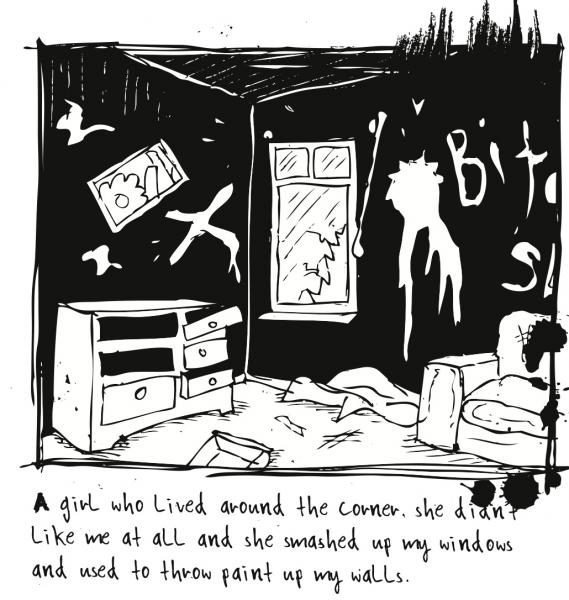 Bit
A girl who lived around the corner. she didn't
like me at all and she smashed up my windows
and used to throw paint up my walls.